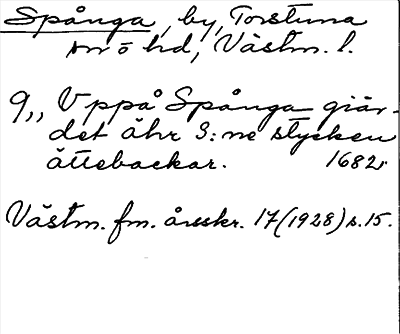 Spånga, by, Torstuna
sn ö hd, Västm. l.
9,, Uppå Spånga giär-
det ähr 3:ne stycken
ättebackar. 1682.
Västm. fm. årsskr. 17 (1928) s. 15.